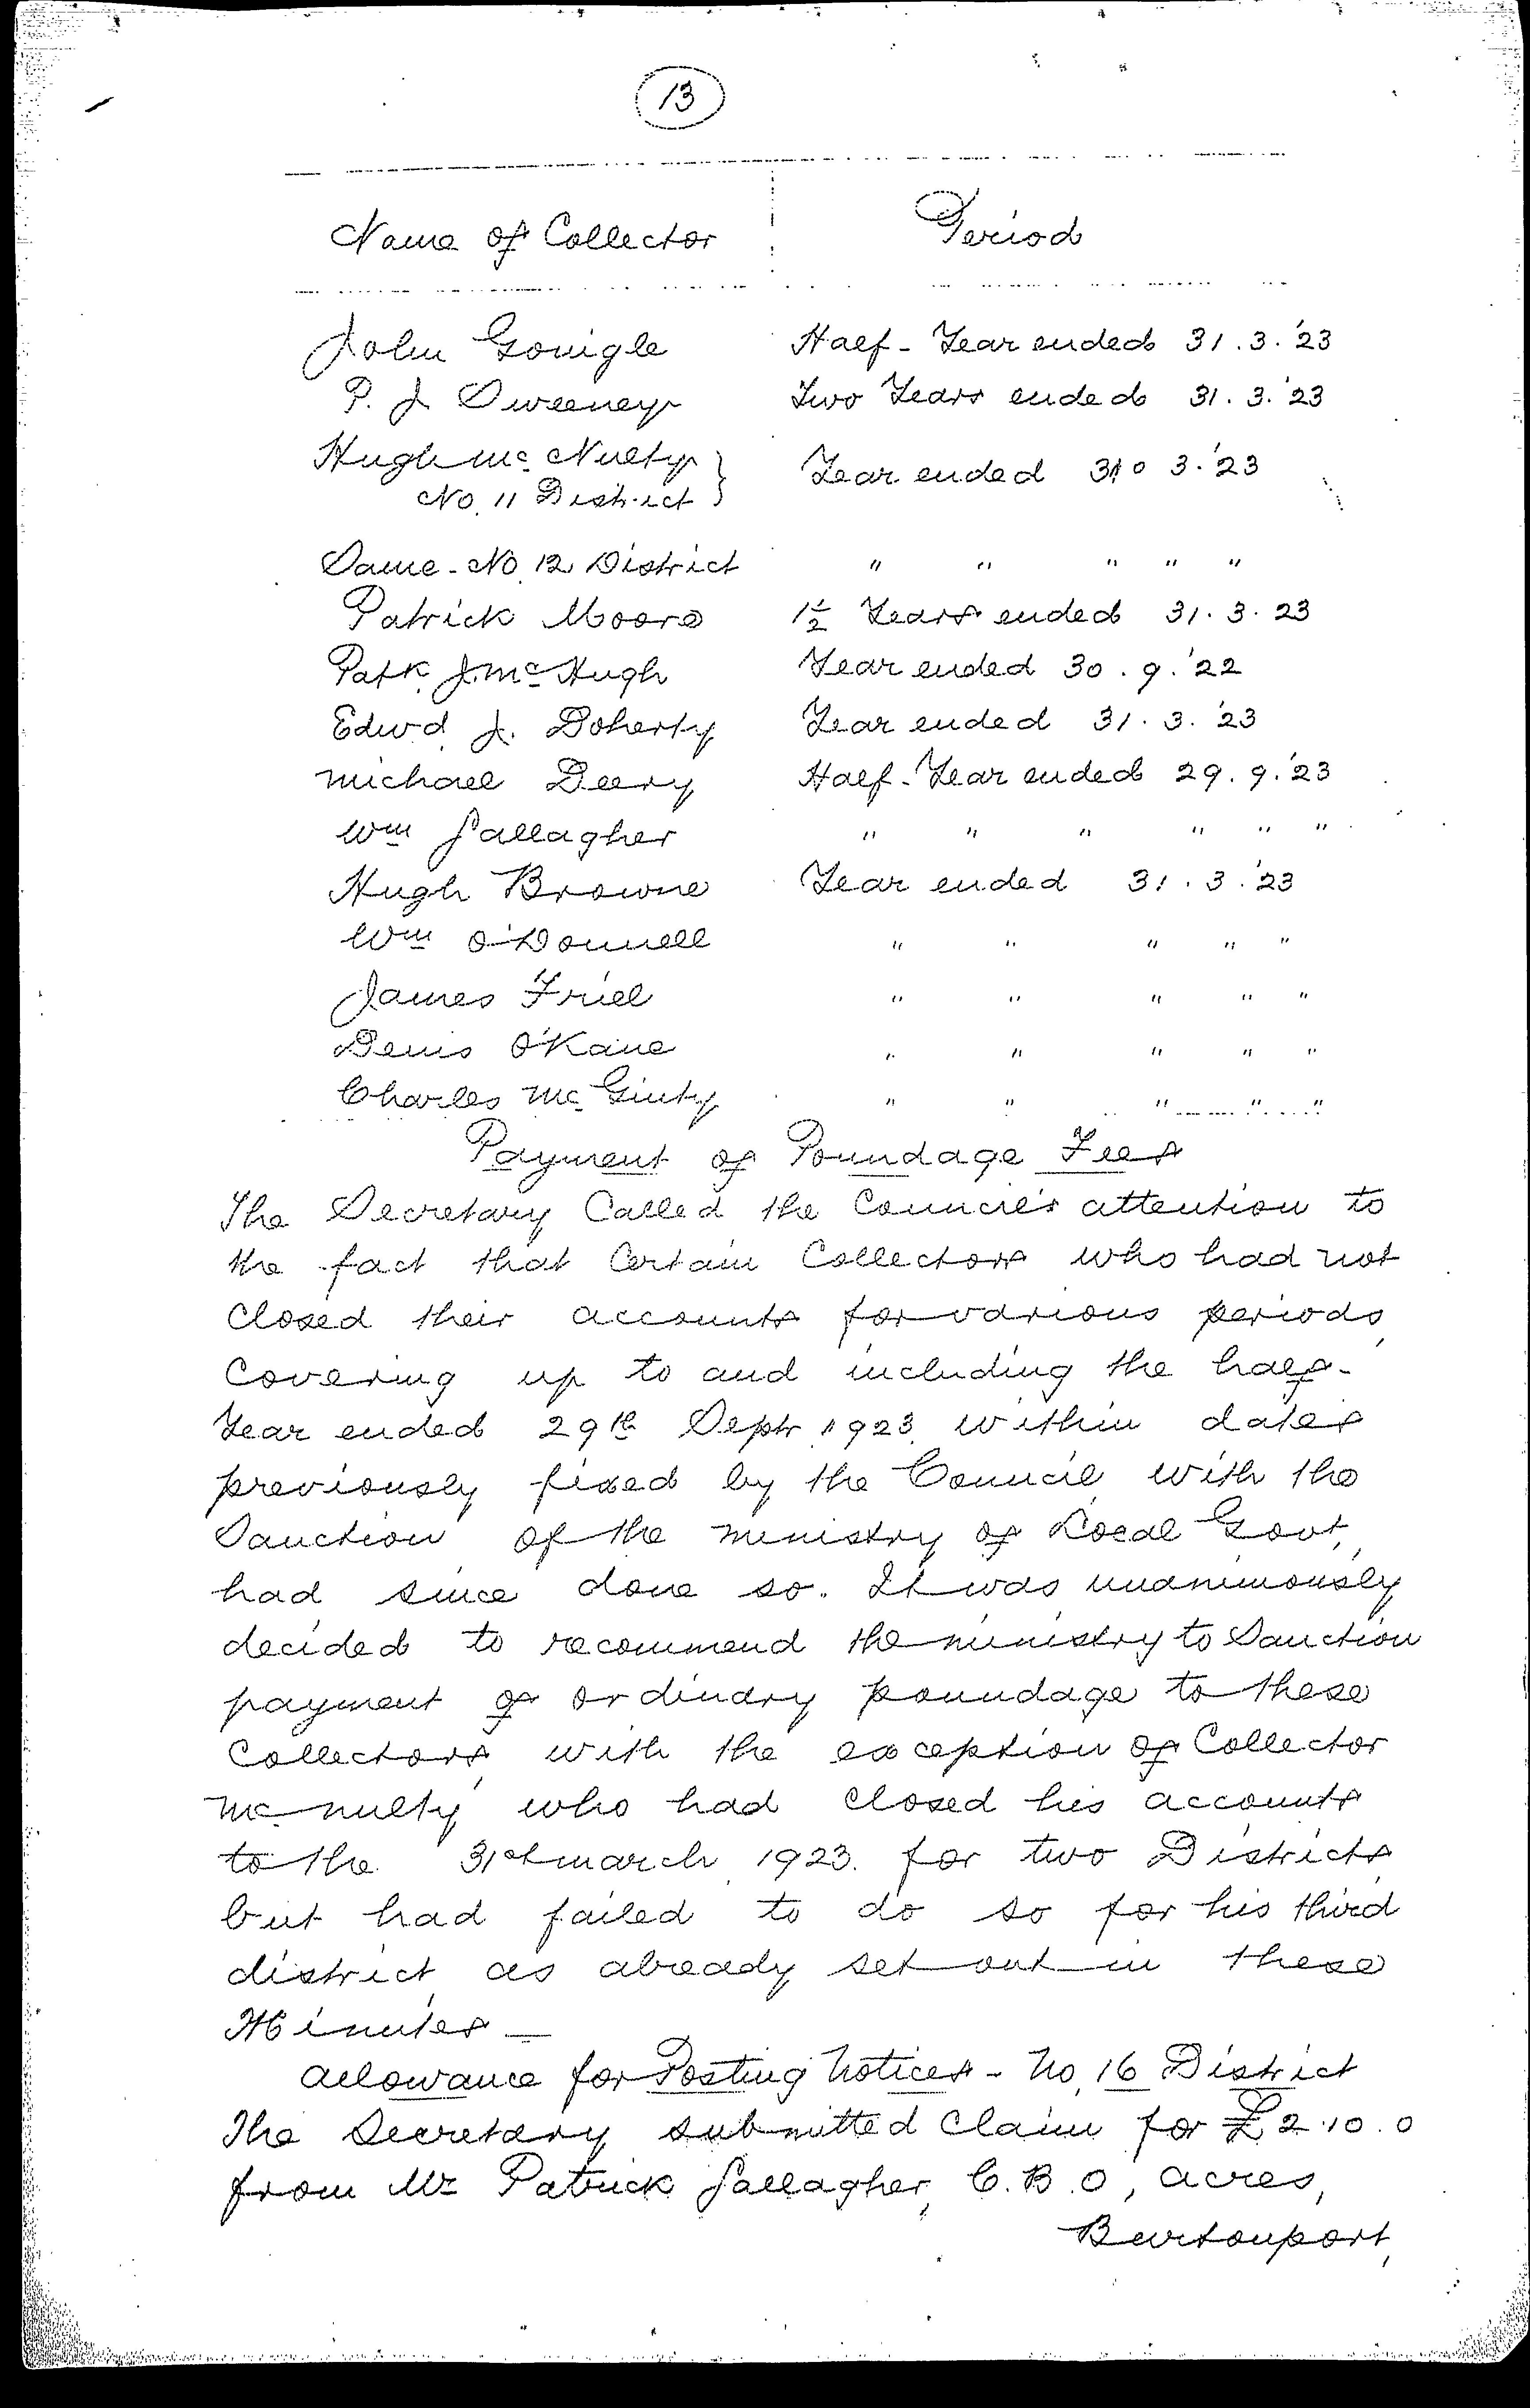 13
Name of Collector Period
John Gonigle Half-Year ended 31.3.'23
P. J. Sweeney Two Years ended 31.3.'23
Hugh Mc. Nulty } Year ended 31.3.'23
No. 11 District
Same - No 12 District " " " " "
Patrick Moore 1½ Years ended 31.3.23
Patk. J. McHugh Year ended 30.9.'22
Edwd. J. Doherty Year ended 31.3.'23
Michael Deery Half-Year ended 29.9.'23
Wm Gallagher " " " " " "
Hugh Browne Year ended 31.3.'23
Wm O'Donnell " " " " "
James Friel " " " " "
Denis O'Kane " " " " "
Charles Mc Ginty " " " " "
Payment of Poundage Fees
The Secretary Called the Council's attention to
the fact that Certain Collectors who had not
Closed their accounts for various periods,
Covering up to and including the half-
Year ended 29th Septr. 1923, within dates
previously fixed by the Council with the
Sanction of the Ministry of Local Govt.,
had since done so. It was unanimously
decided to recommend the Ministry to Sanction
payment of ordinary poundage to these
Collectors, with the exception of Collector
McNulty who had Closed his accounts
to the 31st March, 1923. for two Districts
but had failed to do so for his third
district, as already set out in these
Minutes -
Allowance for Posting Notices - No. 16 District
The Secretary submitted Claim for £2.10.0
from Mr Patrick Gallagher, C.B.O, Acres,
Burtonport,